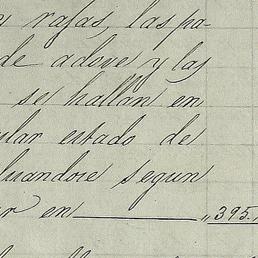 y rafas, las pa-
de adove y las
se hallan en
ular estado de
luandose segun
ar en ——— „395„